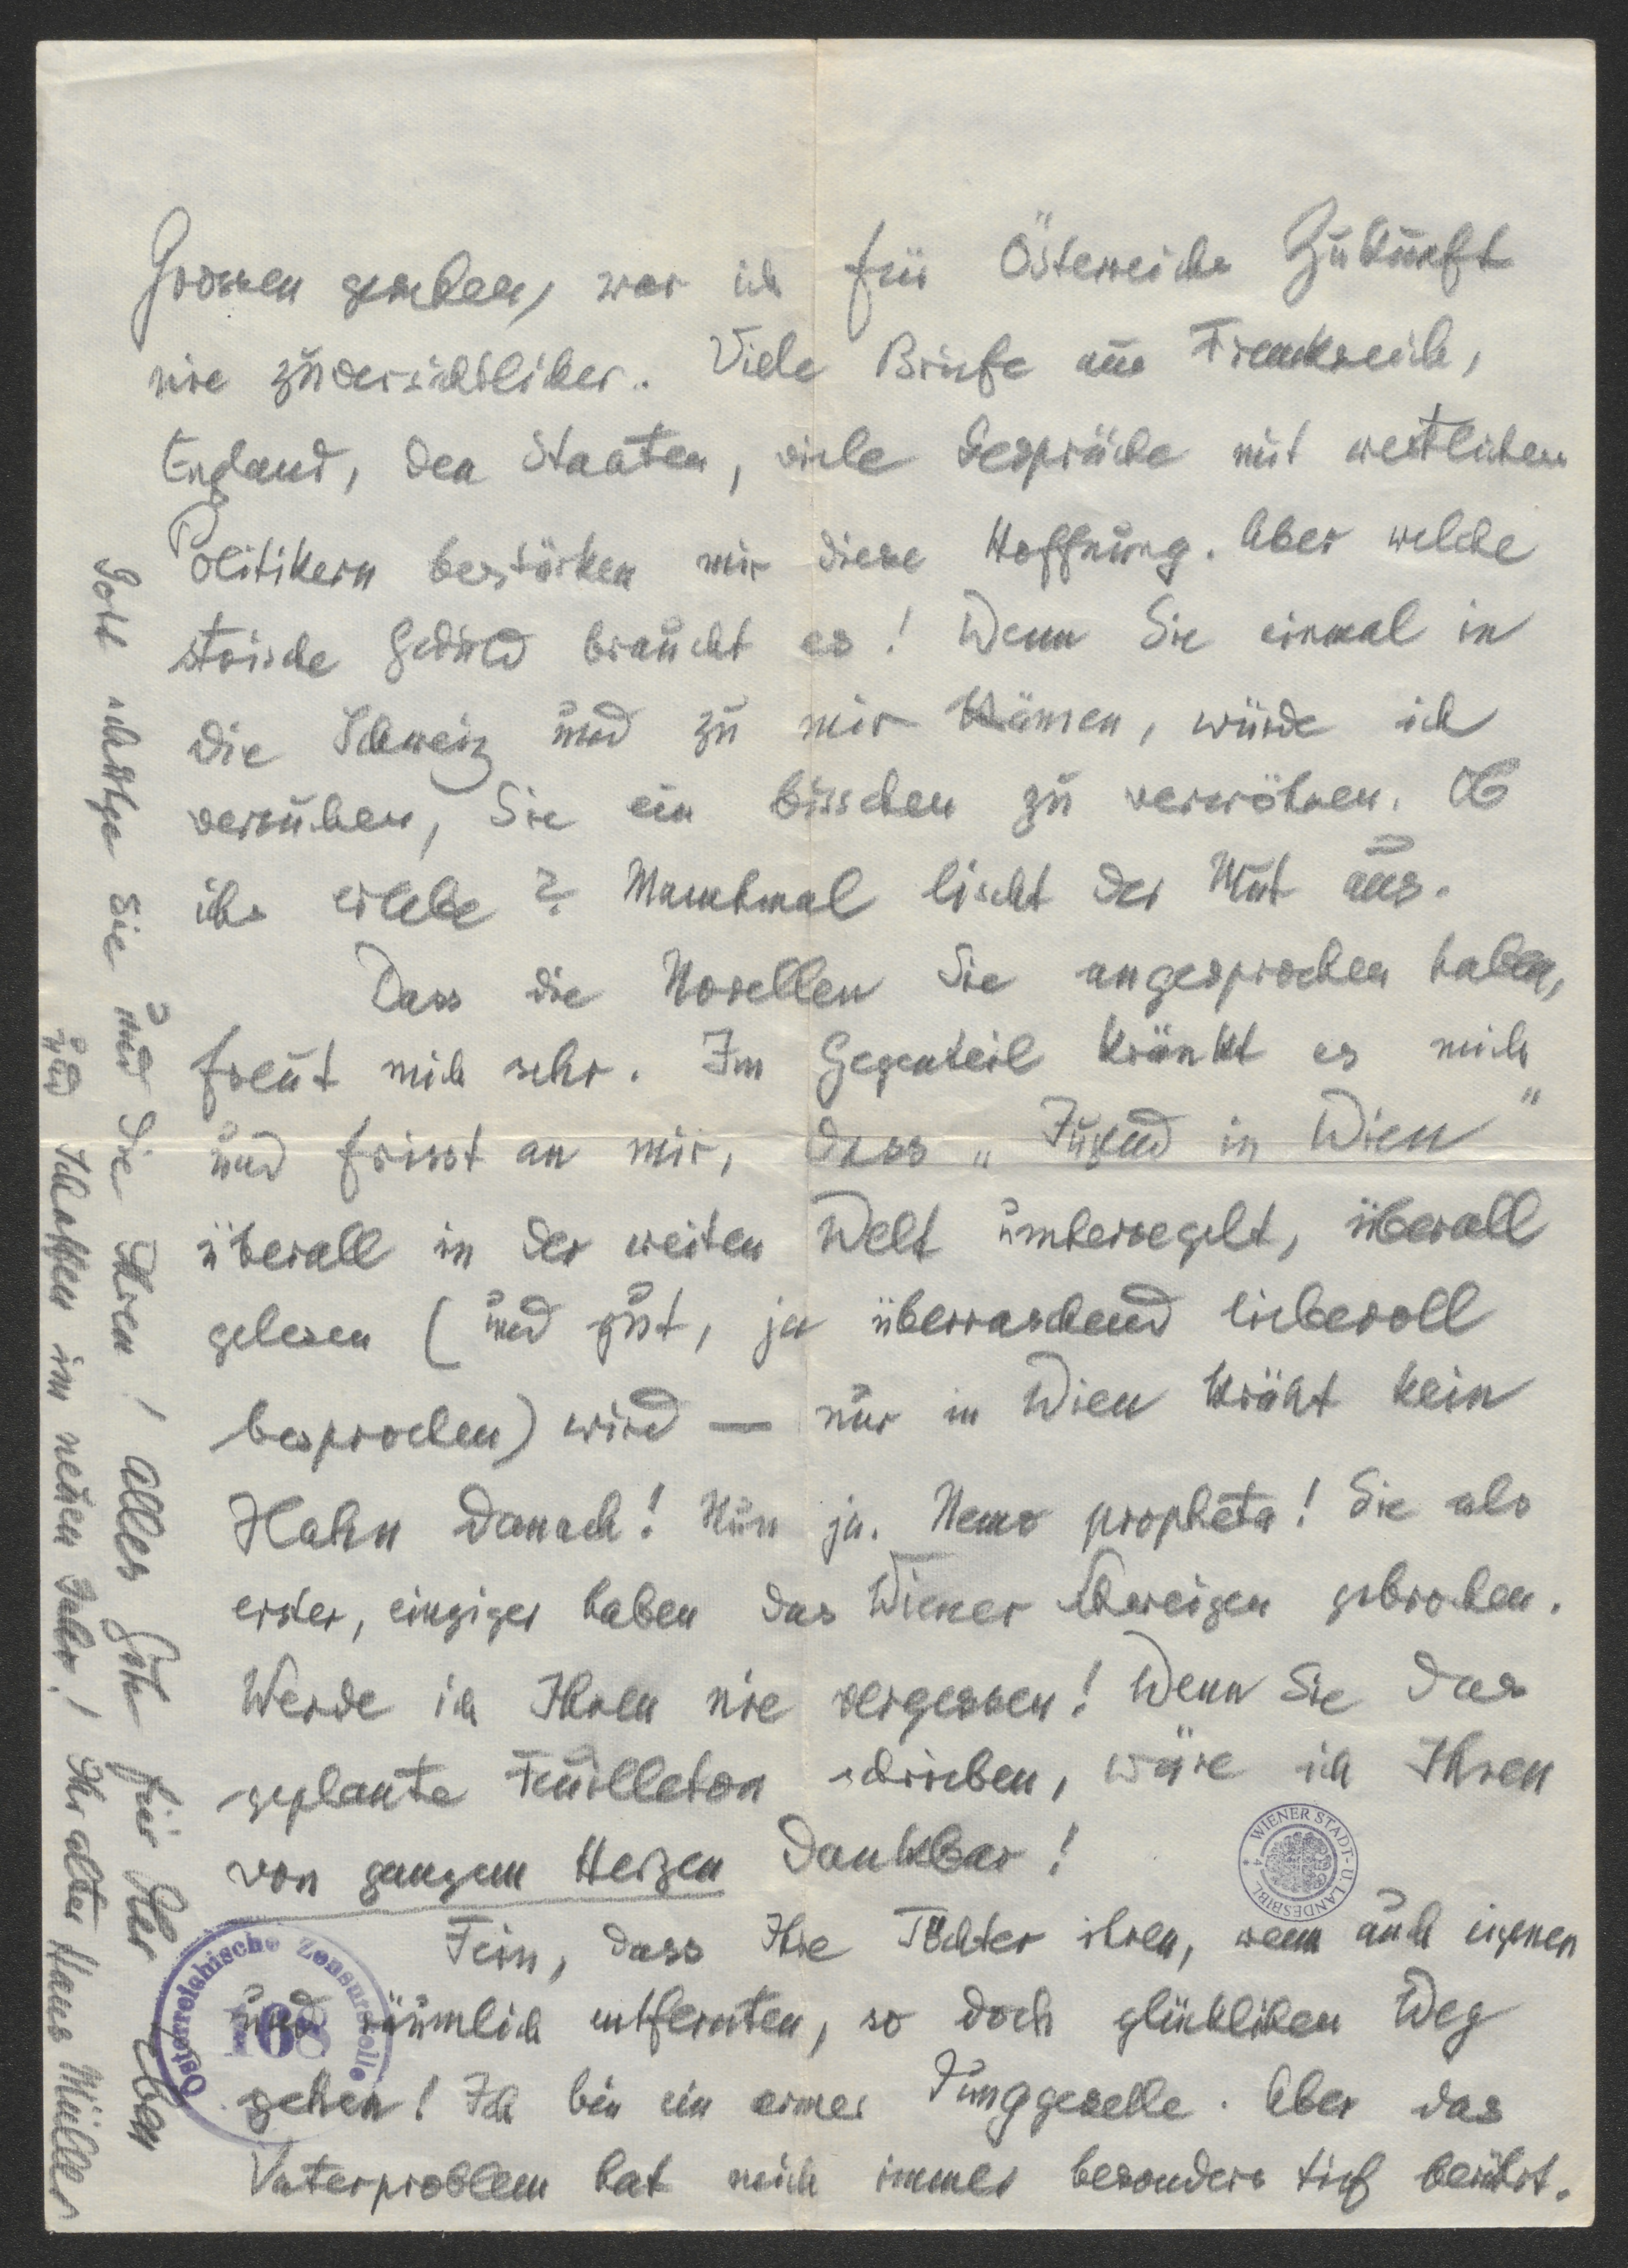 Grossen gesehen, war ich für Österreichs Zukunft
nie zuversichtlicher. Viele Briefe aus Frankreich,
England, den Staaten, viele Gespräche mit westlichen
Politikern bestärken mir diese Hoffnung. Aber welche
stoische Geduld braucht es! Wenn Sie einmal in
die Schweiz und zu mir kämen, würde ich
versuchen, Sie ein bisschen zu verwöhnen. Ob
ichs erlebe? Manchmal lischt der Mut aus.
Dass die Novellen Sie angesprochen haben,
freut mich sehr. Im Gegenteil kränkt es mich
und frisst an mir, dass „Jugend in Wien"
überall in der weiten Welt umhersegelt, überall
gelesen (und gut, ja überraschend liebevoll
besprochen) wird — nur in Wien kräht kein
Hahn danach! Nun ja. Nemo propheta! Sie als
erster, einziger haben das Wiener Schweigen gebrochen.
Werde ich Ihnen nie vergessen! Wenn Sie das
geplante Feuilleton schrieben, wäre ich Ihnen
von ganzem Herzen dankbar!
Fein, dass Ihre Töchter ihren, wenn auch eigenen
und räumlich entfernten, so doch glücklichen Weg
gehen! Ich bin ein armer Junggeselle. Aber das
Vaterproblem hat mich immer besonders tief berührt.
Gott schütze Sie und die Ihren, alles Gute für Ihr Leben
und Schaffen im neuen Jahr! Ihr alter Hans Müller
WIENER STADT- U. LANDESBIBL.
Österreichische Zensurstelle
168